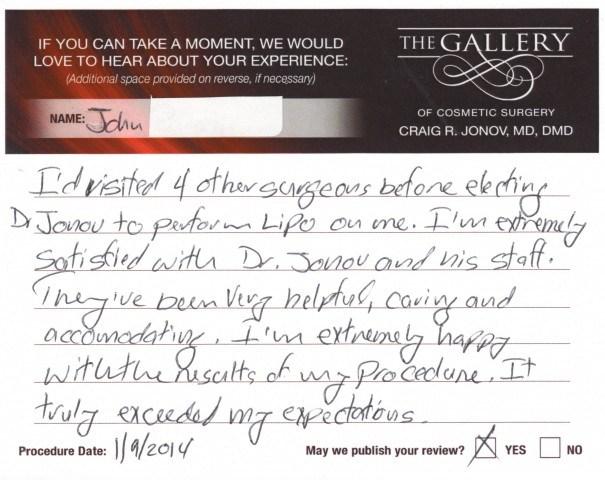 IF YOU CAN TAKE A MOMENT, WE WOULD
LOVE TO HEAR ABOUT YOUR EXPERIENCE:
(Additional space provided on reverse, if necessary)
NAME: John
THE GALLERY
OF COSMETIC SURGERY
CRAIG R. JONOV, MD, DMD
I'd visited 4 other surgeons before electing
Dr Jonov to perform Lipo on me. I'm extremely
satisfied with Dr. Jonov and his staff.
They've been very helpful, caring and
accomodating. I'm extremely happy
with the results of my procedure. It
truly exceeded my expectations.
Procedure Date: 1/9/2014
May we publish your review? YES NO